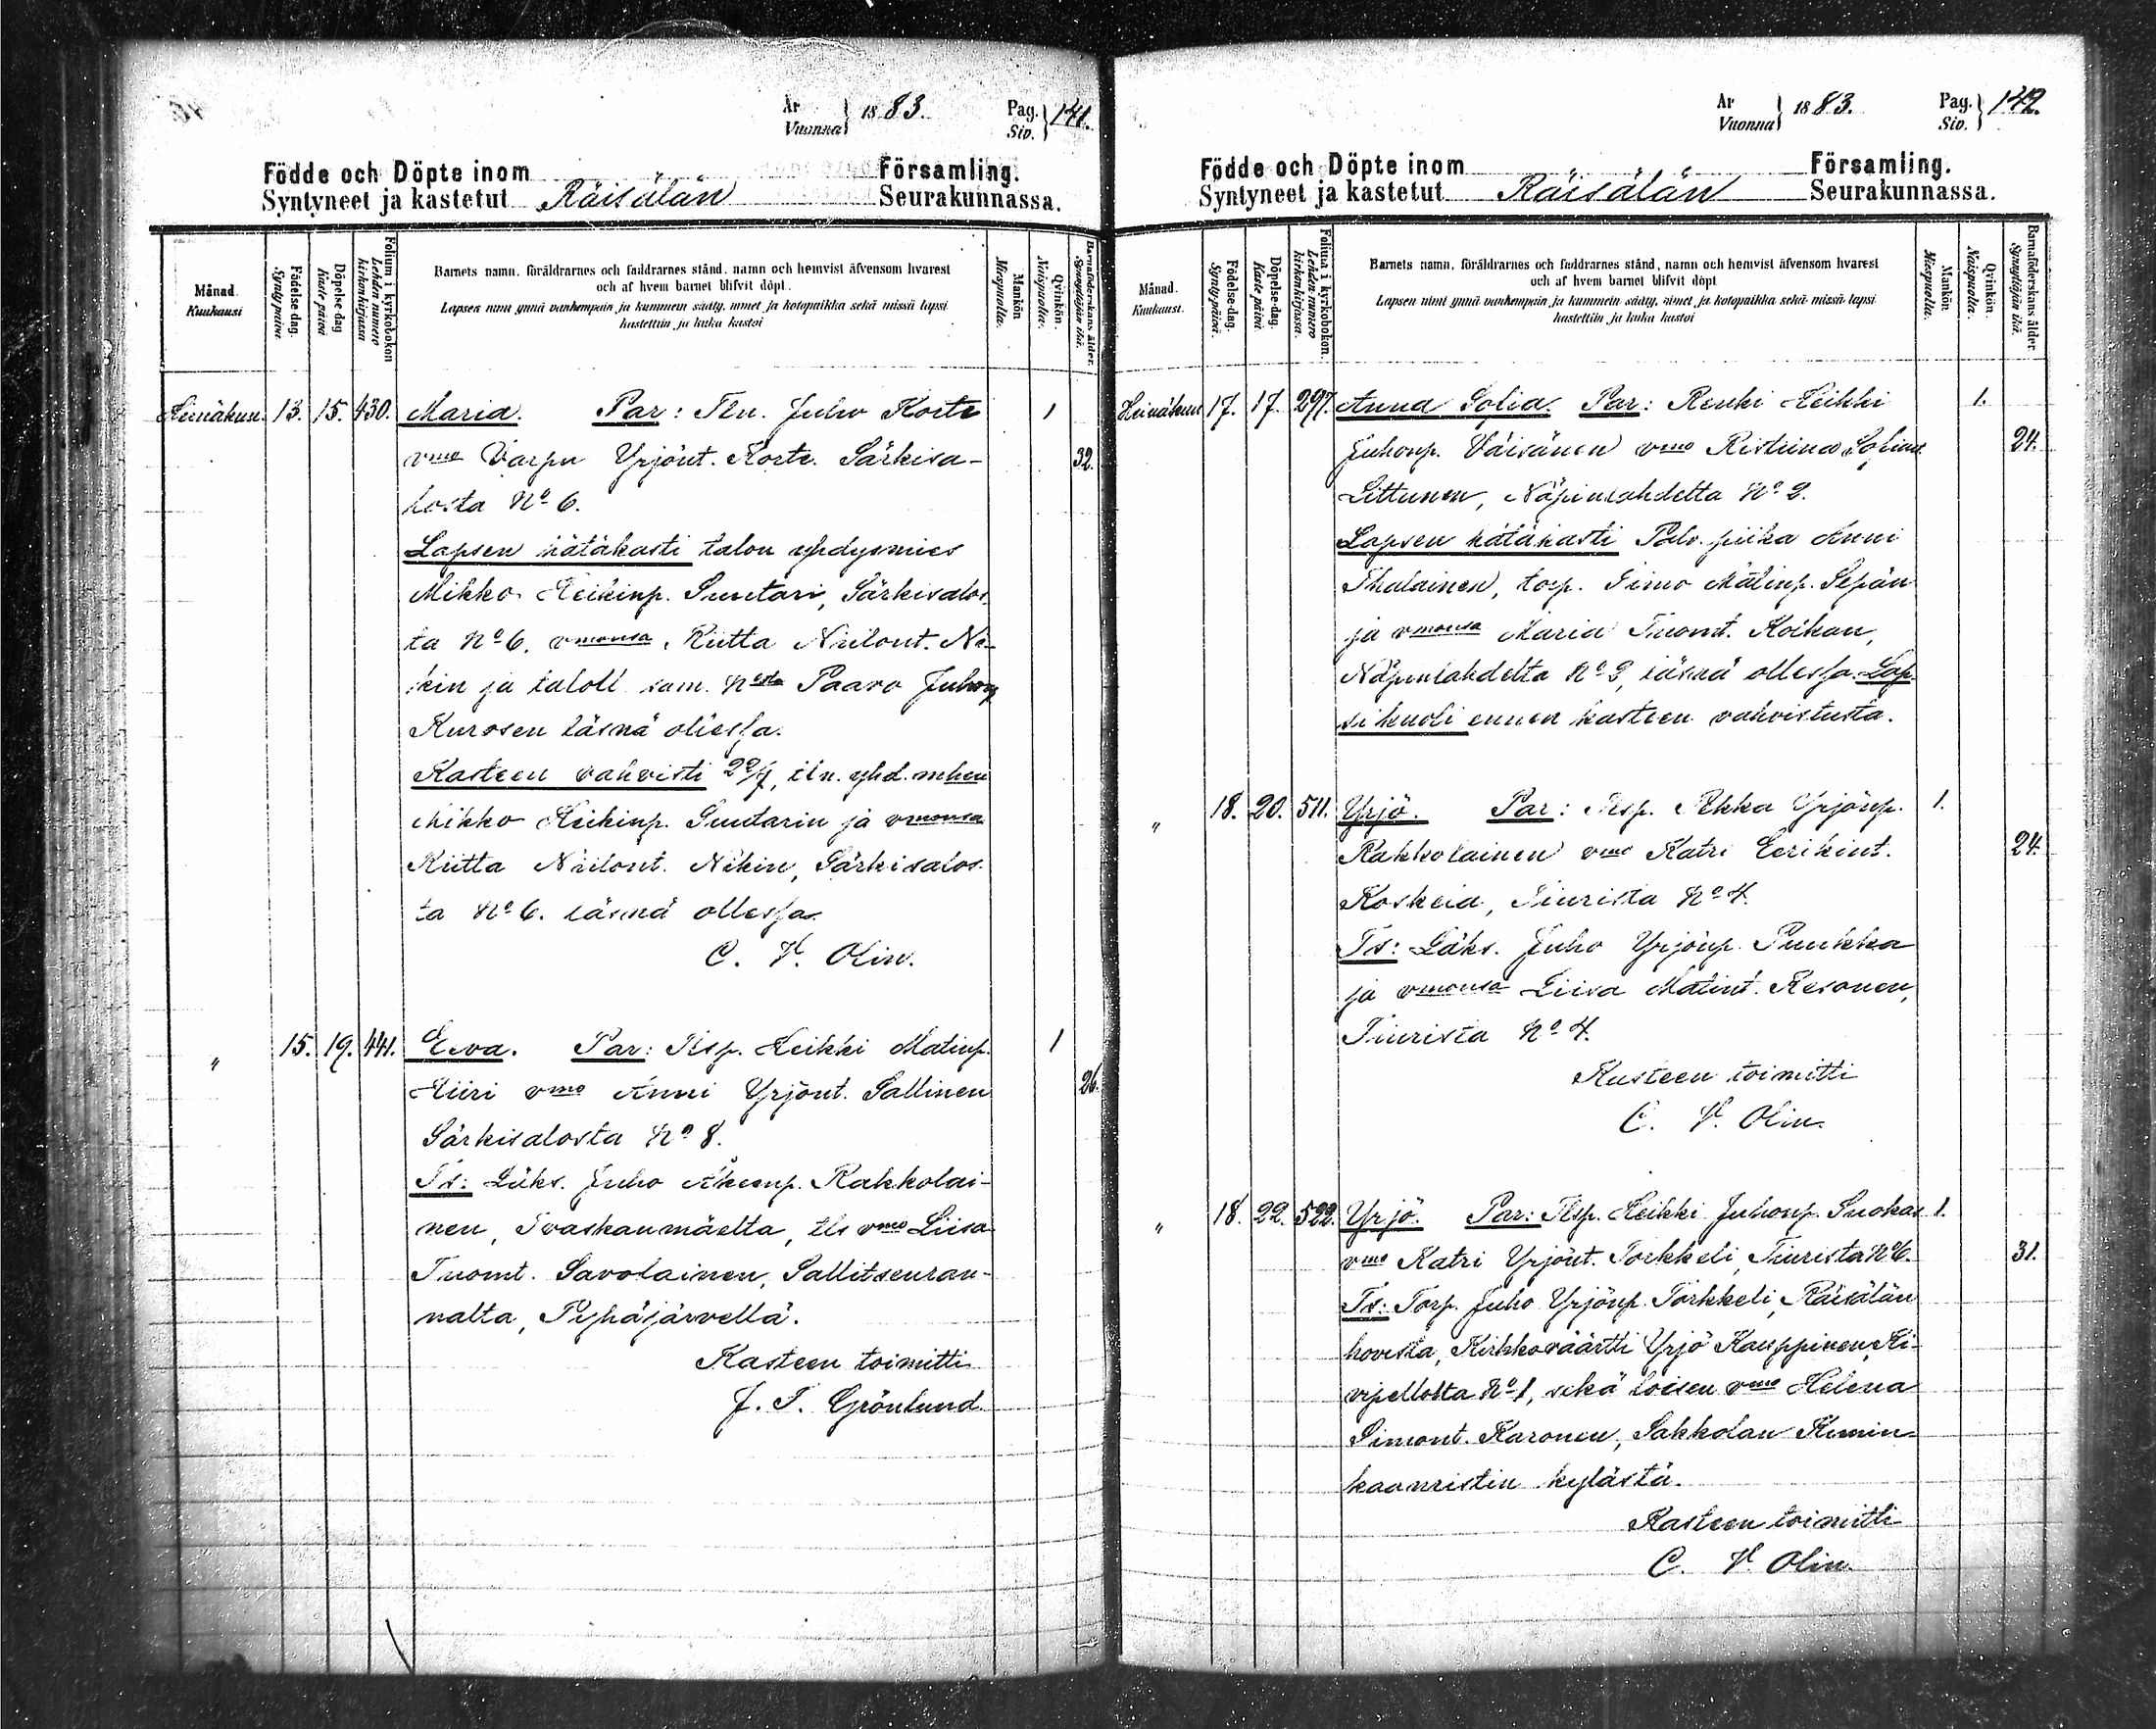 År
Vuonna } 1883.
Pag.
Siv. } 141.
Födde och Döpte inom Församling.
Syntyneet ja kastetut Räisälän Seurakunnassa.
Månad.
Kuukausi
Födelse-dag.
Synty-päivä
Döpelse-dag
Kaste päivä
Folium i kyrkobokon
Lehden numero
kirkonkirjassa
Barnets namn, föräldrarnes och faddrarnes stånd, namn och hemvist äfvensom hvarest
och af hvem barnet blifvit döpt.
Lapsen nimi ynnä vanhempain ja kummein sääty, nimet ja kotopaikka sekä missä lapsi
kastettiin ja kuka kastoi
Mankön
Miespuolia.
Qvinkön.
Naispuolia.
Barnaföderskans ålder.
Synnyttäjän ikä.
Heinäkuu. 13. 15. 430. Maria. Par: Tln. Juho Korte 1
vmo Varpu Yrjönt. Korte. Särkisa- 32.
losta No 6.
Lapsen hätäkasti talon yhdysmies
Mikko Heikinp. Suutari, Särkisalos-
ta No 6. vmonsa Riitta Niilont. Ne-
kin ja taloll. sam. Nosta Paavo Juhonp
Kurosen läsnä ollessa.
Kasteen vahvisti 22/7, tln. yhd. mhen
Mikko Heikinp. Suutarin ja vmonsa
Riitta Niilont. Nekin, Särkisalos-
ta No 6. läsnä ollessa.
C. V. Olin.
" 15. 19. 441. Eeva. Par: Itsp. Heikki Matinp. 1
Hiiri vmo Anni Yrjönt. Sallinen 26.
Särkisalosta No 8.
Ts: Läks. Juho Rakkolai-
nen, Ivaskanmäelta, tls vmo Liisa
Tuomt. Savolainen, Sallitseuran-
nalta, Pyhäjärvellä.
Kasteen toimitti
J. T. Grönlund.
År
Vuonna } 1883.
Pag.
Siv. } 142.
Födde och Döpte inom Församling.
Syntyneet ja kastetut Räisälän Seurakunnassa.
Månad.
Kuukausi.
Födelse-dag.
Synty-päivä.
Döpelse-dag.
Kaste päivä.
Folium i kyrkobokon.
Lehden numero
kirkonkirjassa.
Barnets namn, föräldrarnes och faddrarnes stånd, namn och hemvist äfvensom hvarest
och af hvem barnet blifvit döpt
Lapsen nimi ynnä vanhempain ja kummein sääty, nimet ja kotopaikka sekä missä lapsi
kastettiin ja kuka kastoi
Mankön
Miespuolia.
Qvinkön.
Naispuolia.
Barnaföderskans ålder
Synnyttäjän ikä.
Heinäkuu 17. 17. 297. Anna Sofia. Par: Renki Heikki 1.
Juhonp. Väisänen vmo Ristiina 24.
Littunen, Näpinlahdelta No 2.
Lapsen hätäkasti Palv. piika Anni
Ihalainen, torp. Simo Matinp. Sepän
ja vmonsa Maria Tuomt. Koikan,
Näpinlahdelta No 2, läsnä ollessa. Lap-
si kuoli ennen kasteen vahvistusta.
" 18. 20. 511. Yrjö. Par: Itsp. Pekka Yrjönp. 1.
Rakkolainen vmo Katri Eerikint. 24.
Koskeia, Tiurista No 4.
Ts: Läks. Juho Yrjönp. Puukka
ja vmonsa Liisa Matint. Resonen,
Tiurista No 4.
Kasteen toimitti
C. V. Olin.
" 18. 22. 522. Yrjö. Par: Itsp. Heikki Juhonp. Suokas 1.
vmo Katri Yrjönt. Torkkeli, Tiurista No 6. 31.
Ts: Torp. Juho Yrjönp. Torkkeli, Räisälän
hovista, Kirkkoväärtti Yrjö Kauppinen, Ki-
vipellolta No 1, sekä loisen vmo Helena
Simont. Karonen, Sakkolan Kumin-
kaanristin kylästä.
Kasteen toimitti
C. V. Olin.